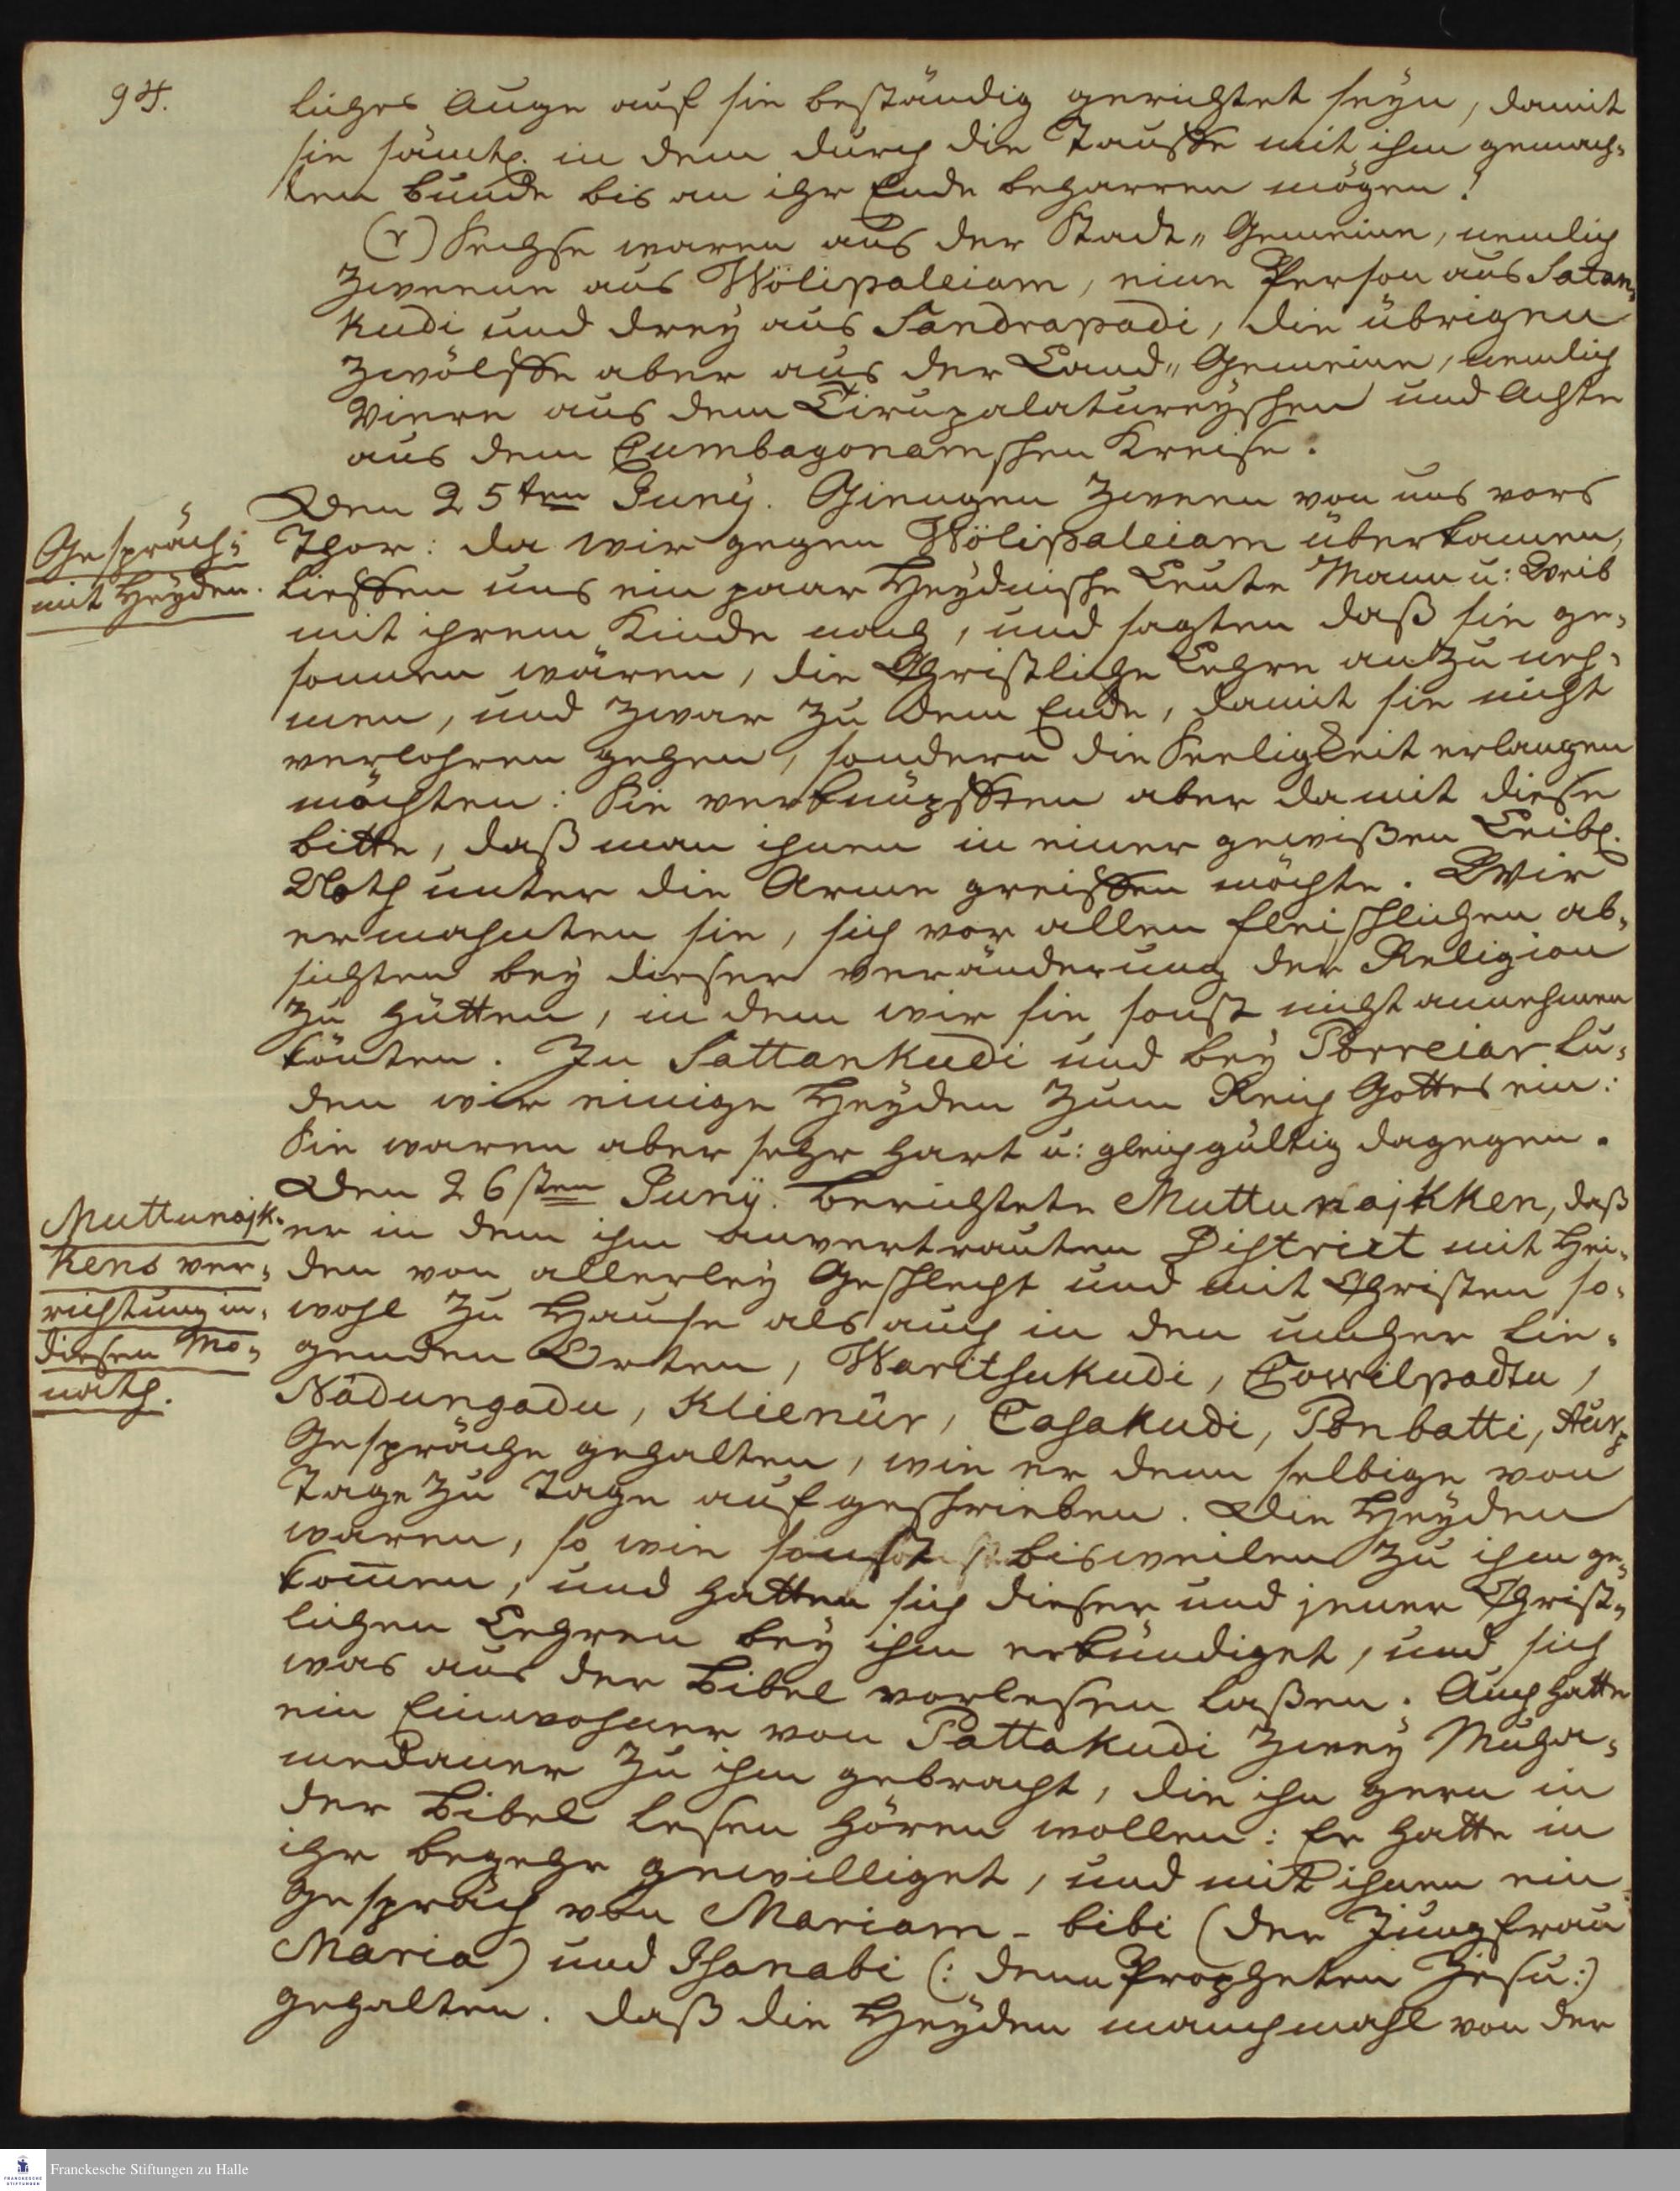 94.
liches Auge auf sie beständig gerichtet seyn, damit
sie sämtl. in dem durch die Tauffe mit ihm gemach-
ten Bunde bis an ihr Ende beharren mögen!
(r) Sechse waren aus der Stadt-Gemeine, nemlich
Zweene aus Wölipaleiam, eine Person aus Satan-
kudi und drey aus Sandrapadi, die übrigen
Zwölffe aber aus der Land-Gemeine, nemlich
Viere aus dem Tirupalatureyschen und Achte
aus dem Cumbagonamschen Kreise.
Den 25ten Juny. Giengen Zween von uns vors
Gespräch
mit Heyden.
Thor: da wir gegen Wölipaleiam überkamen,
lieffen uns ein paar Heydnische Leute Mann u: Weib
mit ihrem Kinde nach, und sagten daß sie ge-
sonnen wären, die Christliche Lehre anzuneh-
men, und zwar zu dem Ende, damit sie nicht
verlohren gehen, sondern die Seeligkeit erlangen
möchten: Sie verknüpfften aber damit diese
Bitte, daß man ihnen in einer gewißen Leibl.
Noth unter die Arme greiffen möchte. Wir
ermahnten sie, sich vor allen fleischlichen ab-
sichten bey dieser veränderung der Religion
zu hütten, in dem wir sie sonst nicht annehmen
könten. In Sattankudi und bey Porreiar lu-
den wir einige Heyden zum Reich Gottes ein:
Sie waren aber sehr hart u: gleichgültig dagegen.
Den 26sten Juny. berichtete Muttunajkken, daß
Muttunajk-
kens ver-
richtung in
diesen Mo-
nath.
er in dem ihm anvertrauten District mit Hei-
den von allerley Geschlecht und mit Christen so-
wohl zu Hause als auch in den umher lie-
genden Orten, Waritschukudi, Cowilpadtu,
Nädungadu, Klienür, Casakudi, Ponbatti, Aur
Gespräche gehalten, wie er denn selbige von
Tage zu Tage aufgeschrieben. Die Heyden
waren, so wie sonst bisweilen zu ihm ge-
kom̄en, und hatten sich dieser und jener Christ-
lichen Lehren bey ihm erkundiget, und sich
was aus der Bibel vorlesen laßen. Auch hatte
ein Einwohner von Pattakudi zwey Muha-
medaner zu ihm gebracht, die ihn gern in
der Bibel lesen hören wollen: Er hatte in
ihr begehr gewilliget, und mit ihnen ein
Gespräch von Mariam-bibi (der Jungfrau
Maria) und Isanabi (: denn Propheten Jesu:)
gehalten. Daß die Heyden manchmahl von der
FRANCKESCHE STIFTUNGEN
Franckesche Stiftungen zu Halle